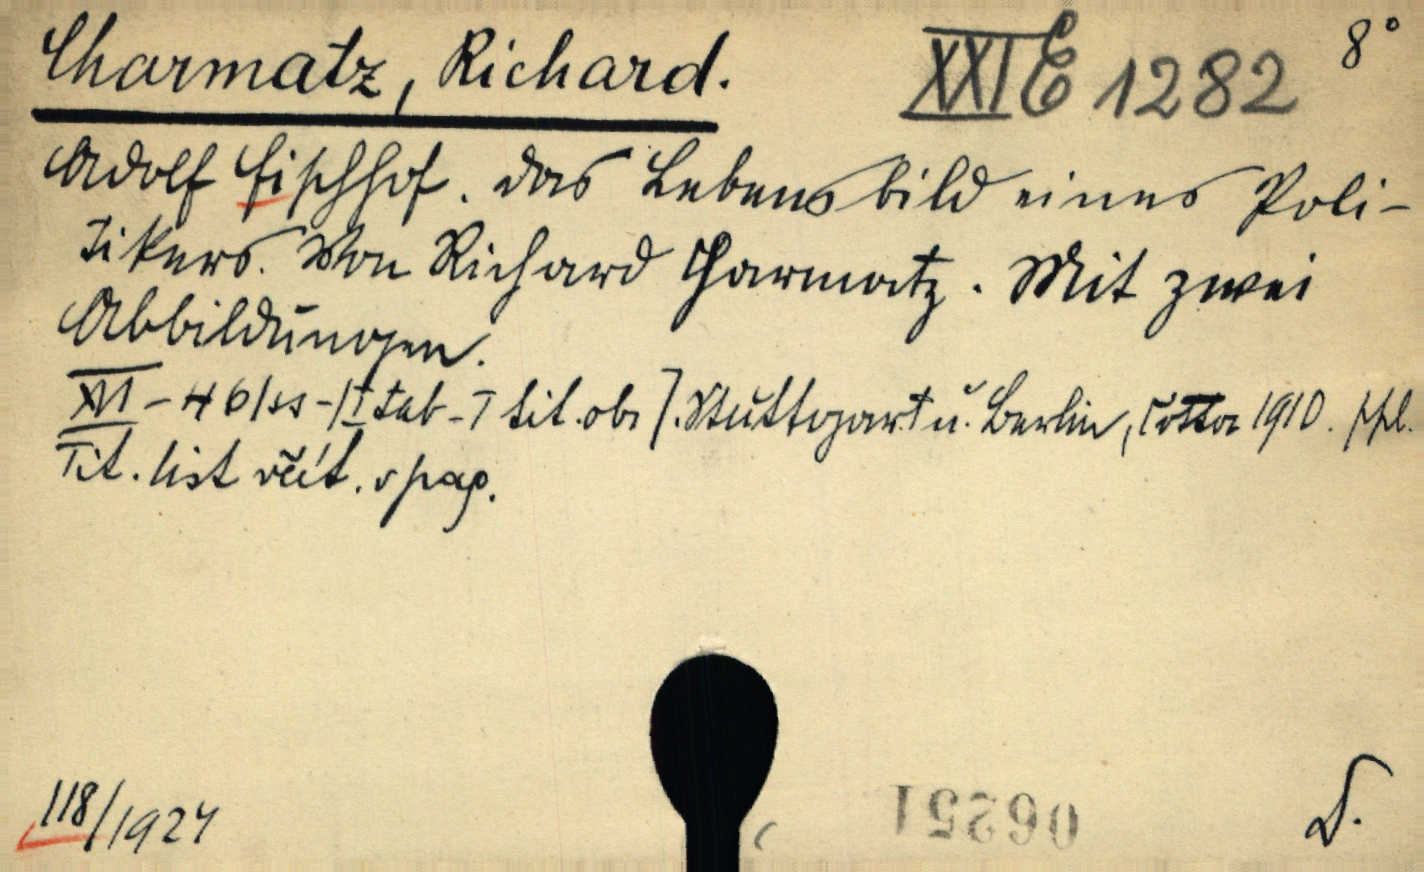 Charmatz, Richard.
XXI E 1282
8°
Adolf Fischhof. Das Lebensbild eines Poli-
tikers. Von Richard Charmatz. Mit zwei
Abbildungen.
XVI - 461 ss - II tab - [1 tit. obr]. Stuttgart u. Berlin, Cotta 1910. ppl.
Tit. list včít. v pag.
118/1927
06251
D.